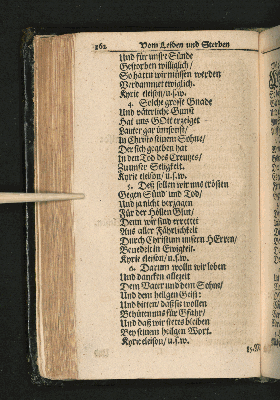 362 Vom Leiden und Sterben
Und für unsre Sünde
Gestorben williglich/
So hätten wir müssen werden
Verdammet ewiglich.
Kyrie eleison/ u.s.w.
4. Solche grosse Gnade
Und väterliche Gunst
Hat uns GOtt erzeiget
Lauter gar umsonst/
In Christo seinem Sohne/
Der sich gegeben hat
In den Tod des Creutzes/
Zu unser Seligkeit.
Kyrie eleison/ u.s.w.
5. Deß sollen wir uns trösten
Gegen Sünd und Tod/
Und ja nicht verzagen
Für der Höllen Glut/
Denn wir sind errettet
Aus aller Fährlichkeit
Durch Christum unsern HErren/
Benedeit in Ewigkeit.
Kyrie eleison/ u.s.w.
6. Darum wolln wir loben
Und dancken allezeit
Dem Vater und dem Sohne/
Und dem heilgen Geist:
Und bitten/ daß sie wollen
Behüten uns für Gfahr/
Und daß wir stets bleiben
Bey seinem heilgen Wort.
Kyrie eleison/ u.s.w.